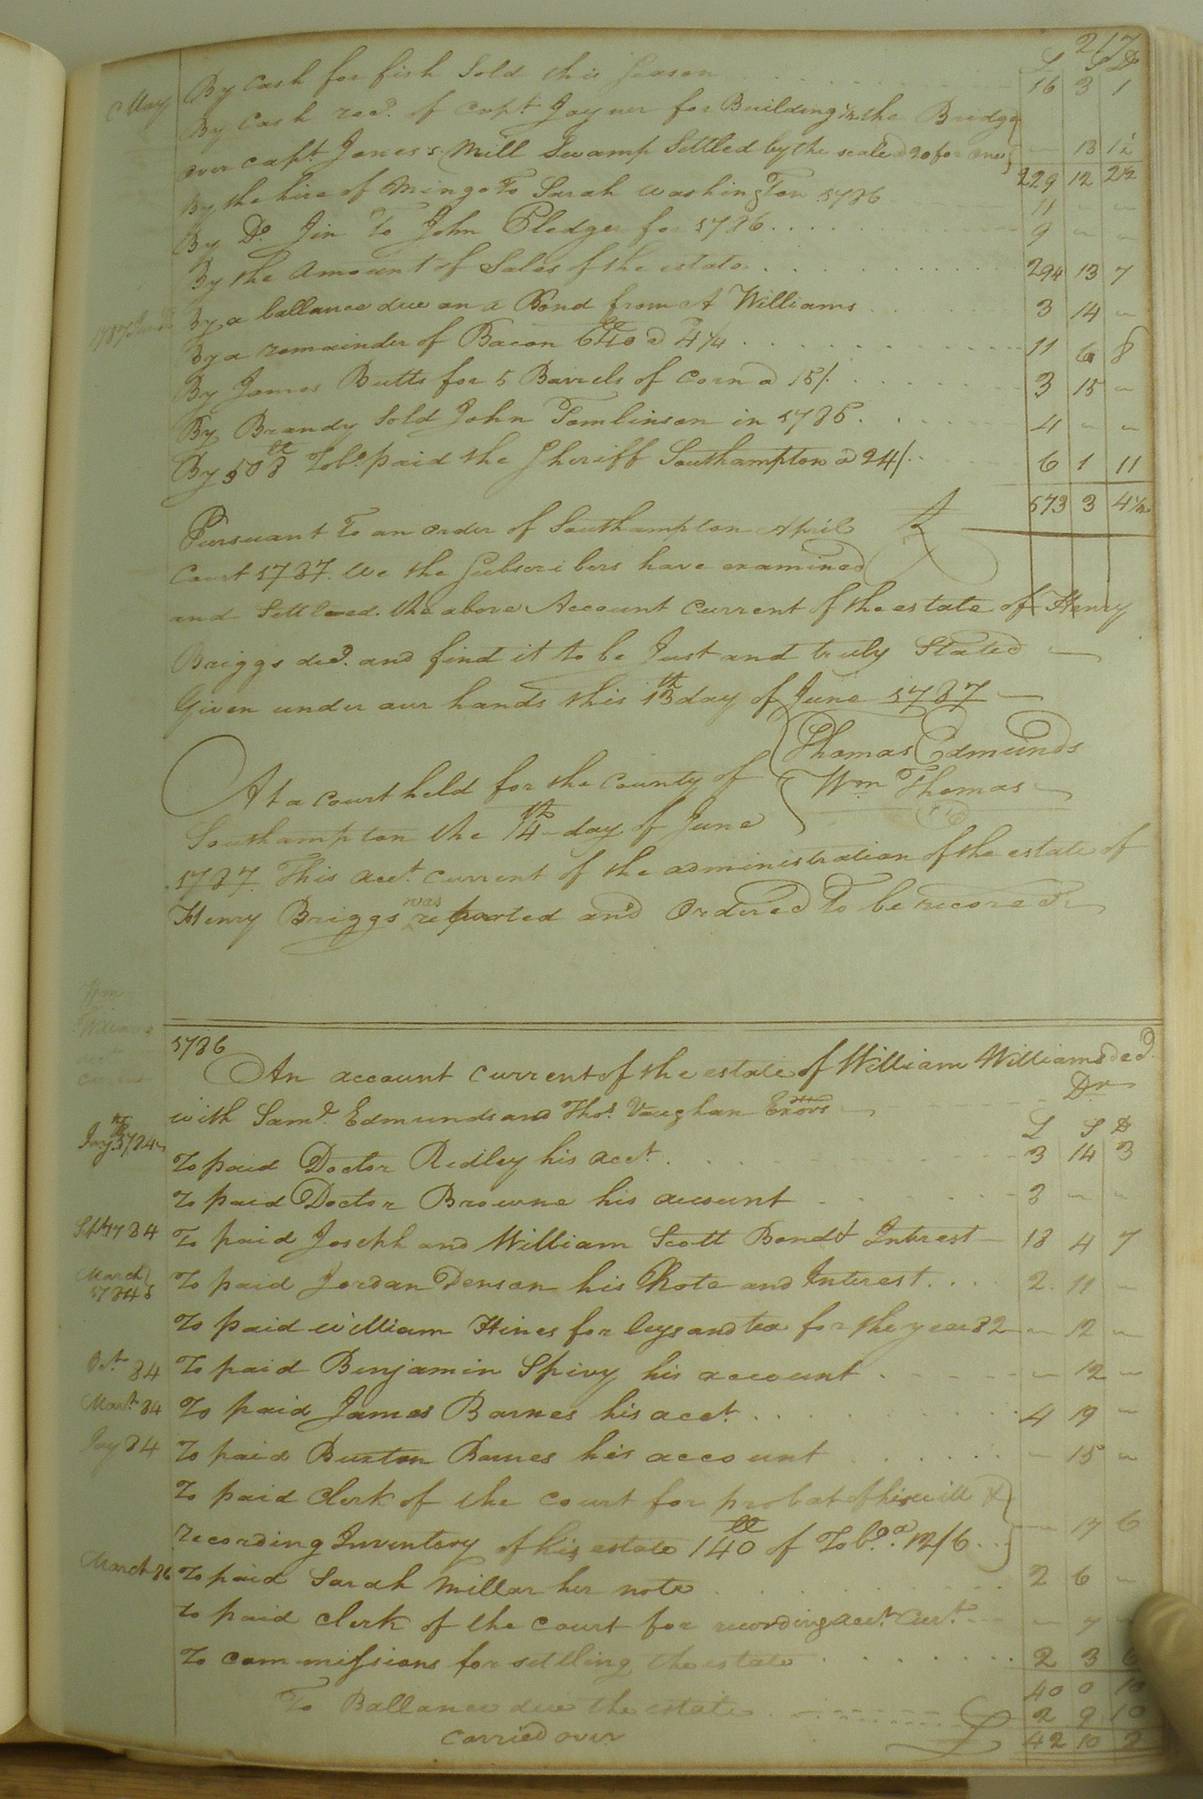 217
L S D
May By Cash for fish Sold this Season 16 3 1
By Cash rec.d of Capt. Joyner for Building in the Bridge
over Capt. Jones's Mill Swamp Settled by the scale @ 20 for one - 13 1½
229 12 2½
By the hire of Mingo To Sarah Washington 1786 11 - -
By Do. Jin To John Pledge for 1786 9 - -
By the Amount of Sales of the estate 294 13 7
1787 By a ballance due on a Bond from A Williams 3 14 -
By a remainder of Bacon 640 lb @ 4¼ 11 6 8
By James Butts for 5 Barrels of Corn @ 15/. 3 15 -
By Brandy Sold John Tomlinson in 1785 4 - -
By 508 lb Tobo. paid the Sheriff Southampton @ 24/. 6 1 11
573 3 4½
Pursuant To an order of Southampton April
Court 1787. We the Subscribers have examined
and Settled. the above Account Current of the estate of Henry
Briggs decd. and find it to be Just and truly Stated
Given under our hands this 13th day of June 1787
Thomas Edmunds
Wm Thomas
At a Court held for the County of
Southampton the 14th day of June
1787. This acct. Current of the administration of the estate of
Henry Briggs was reported and Ordered To be recorded
Wm
Williams
acct
Current
1786
An account Current of the estate of William Williams decd.
Dr
with Saml. Edmunds and Thos. Vaughan Exors
L S D
1784 To paid Doctor Ridley his acct. 3 14 3
To paid Doctor Browne his account 3 - -
Sept 1784 To paid Joseph and William Scott Bond & Interest 18 4 7
March 1784 5 To paid Jordan Denson his Note and Interest 2 11 -
To paid William Hines for levys and tax for the year 82 - 12 -
Oct. 84 To paid Benjamin Spivy his account - 12 -
Mar. 84 To paid James Barnes his acct. 4 19 -
84 To paid Burton Barnes his account - 15 -
To paid Clerk of the Court for probat of his will &
recording Inventory of his estate 140 lb of Tobo. a 12/6 - 17 6
March 86 To paid Sarah Millar her note 2 6 -
To paid Clerk of the Court for recording acct. Curt. - 7 -
To commissions for settling the estate 2 3 6
40 0 10
To Ballance due the estate 2 9 10
Carried over 42 10 2